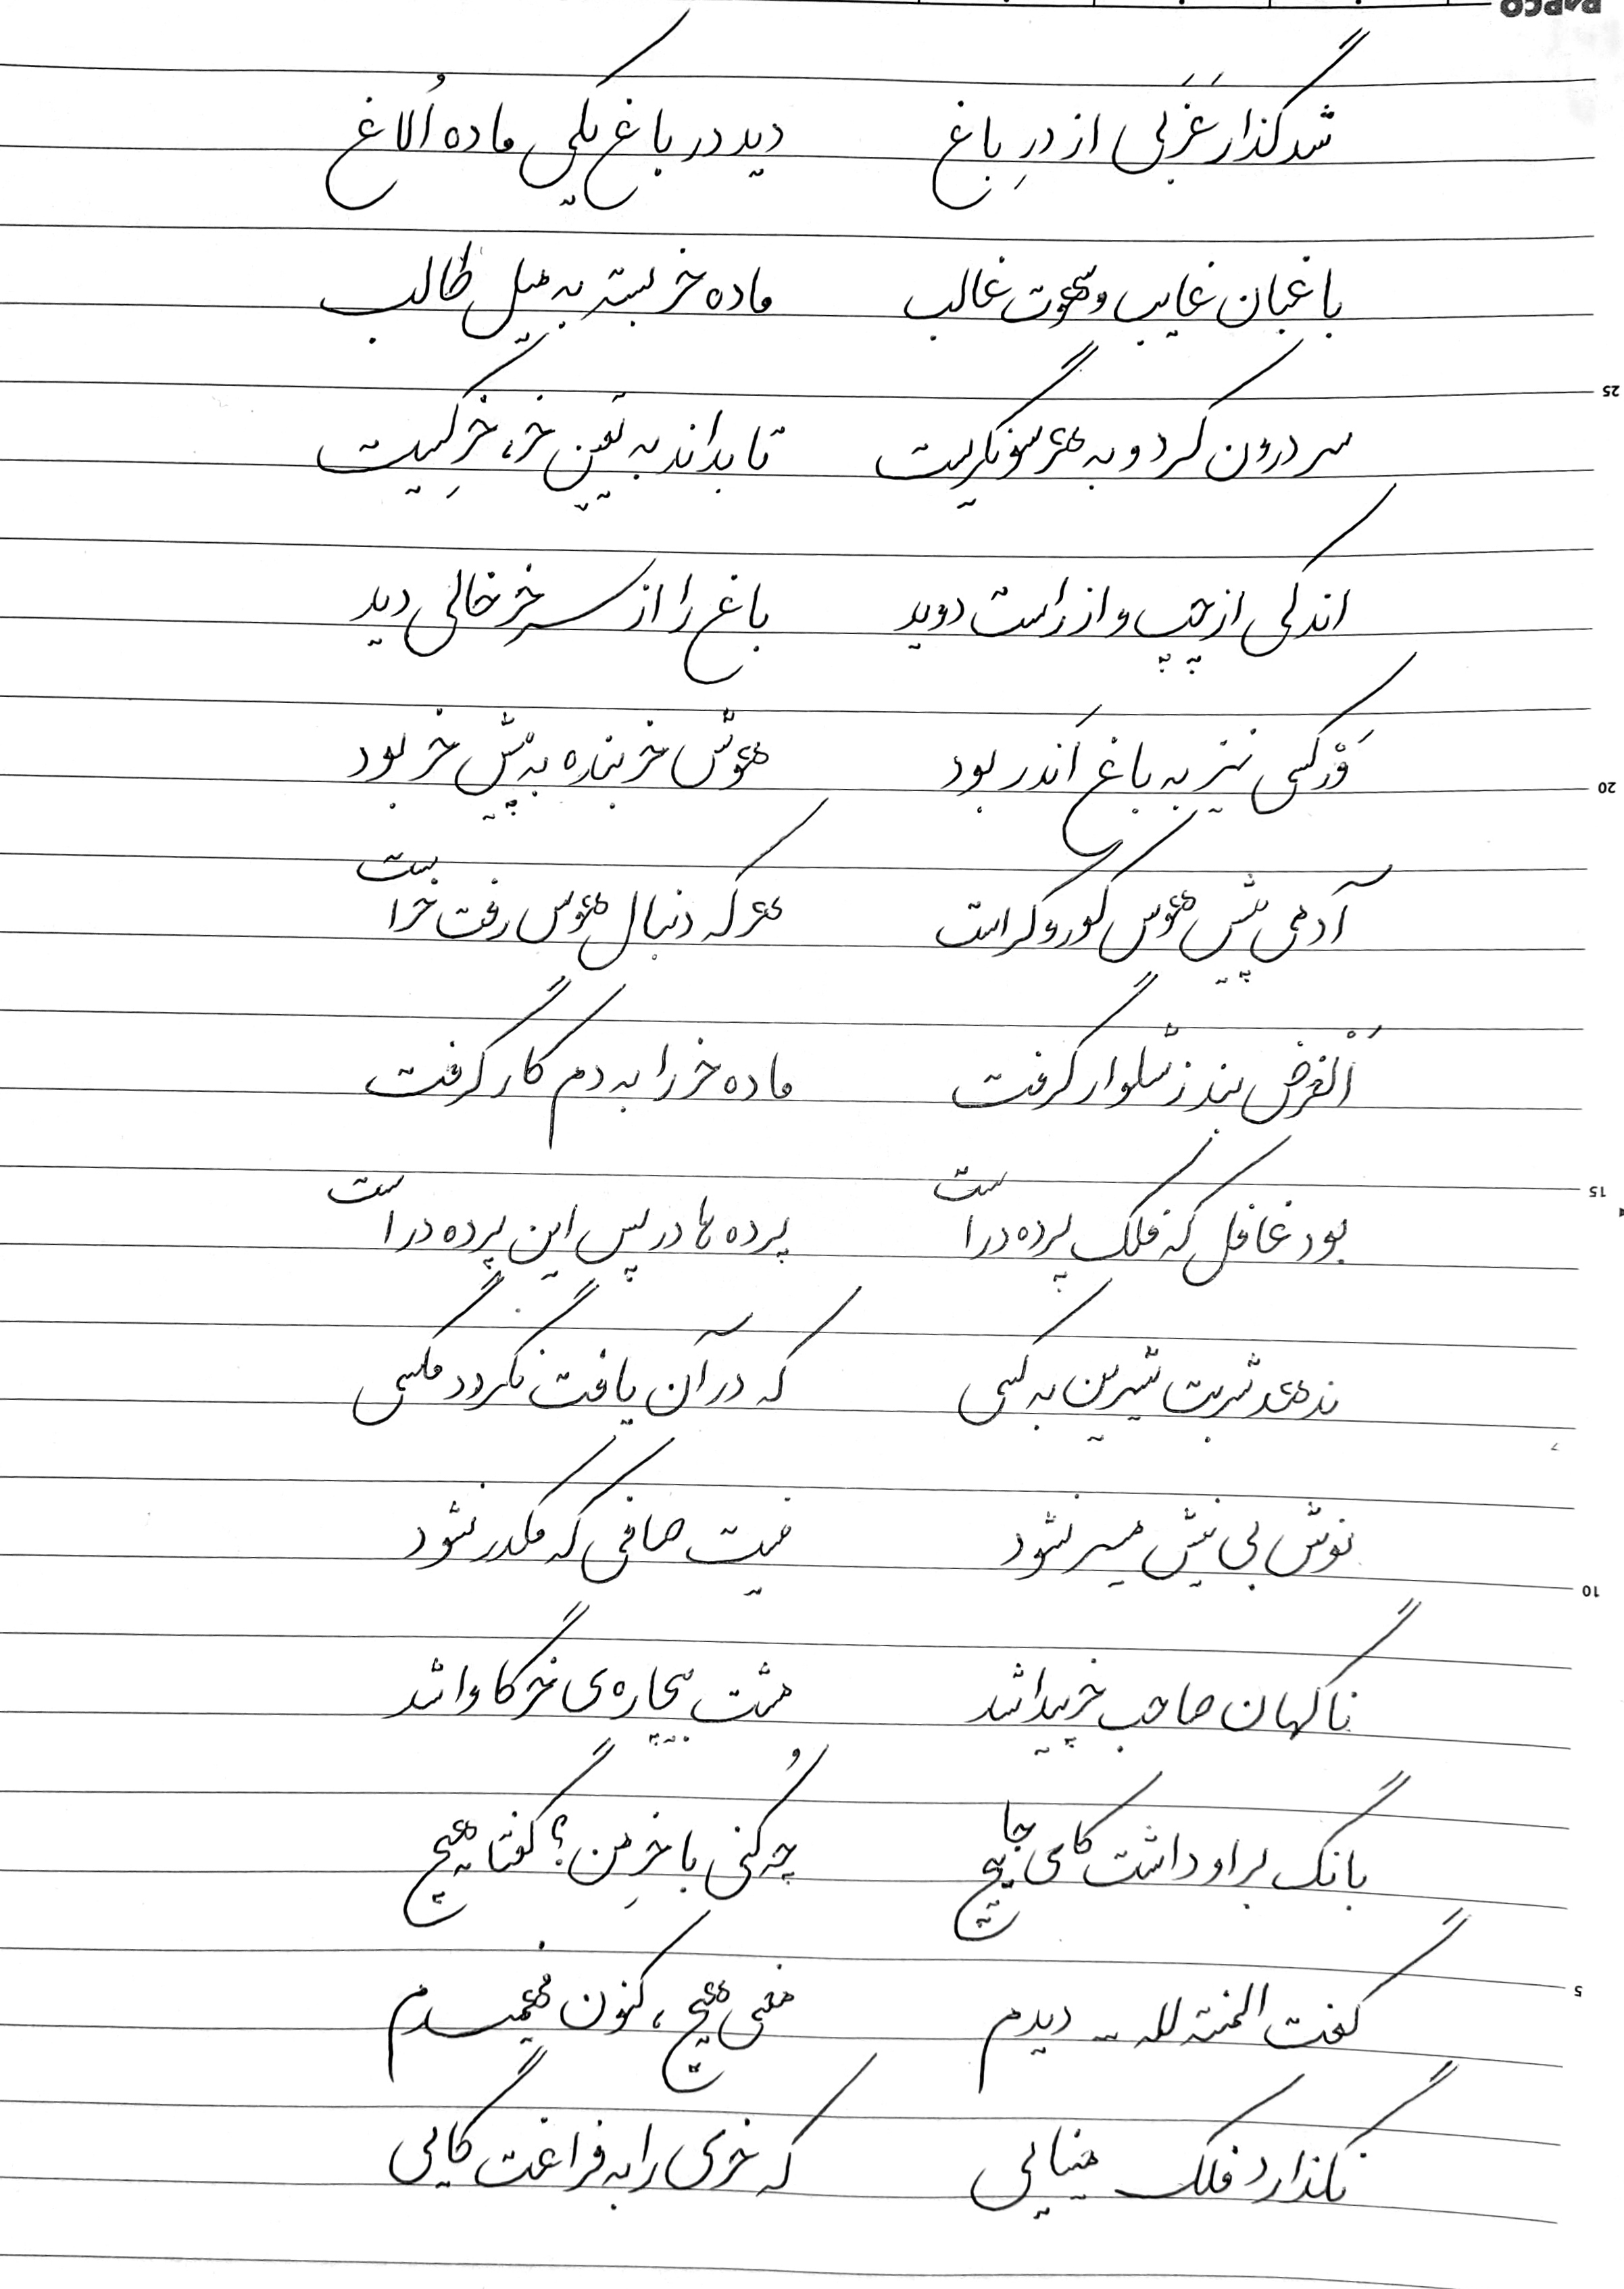 شد گذار عَزَبی از درِ باغ دید در باغ یکی ماده اُلاغ
باغبان غایب و شهوت غالب ماده خر بسته به میل طالب
سر درون کرد و به هر سو نگریست تا بداند به یقین خر، خرِ کیست
اندکی از چپ و از راست دوید باغ را از سر خر خالی دید
وَرْ کسی نیز به باغ اَندر بود هوش خربنده به پیش خر بود
آدمی پیش هوس کور و کر است هر که دنبال هوس رفت خر است
اَلْغرض بند ز شلوار گرفت ماده خر را به دم کار گرفت
بود غافل که فلک پرده در است پرده ها در پس این پرده در است
ندهد شربت شیرین به کسی که در آن یافت نگردد مگسی
نوش بی نیش میسر نشود نیست صافی که مکدر نشود
ناگهان صاحب خر پیدا شد مشت بیچاره ی خرگا وا شد
بانگ بر او داشت کای جاپیچ چه کُنی با خرِ من؟ گفتا هیچ
گفت المنته لله .. دیدم معنی هیچ، کنون فهمیدم
نگذارد فلک مینایی که خری را به فراغت گایی
PAPCO
25
20
15
10
5